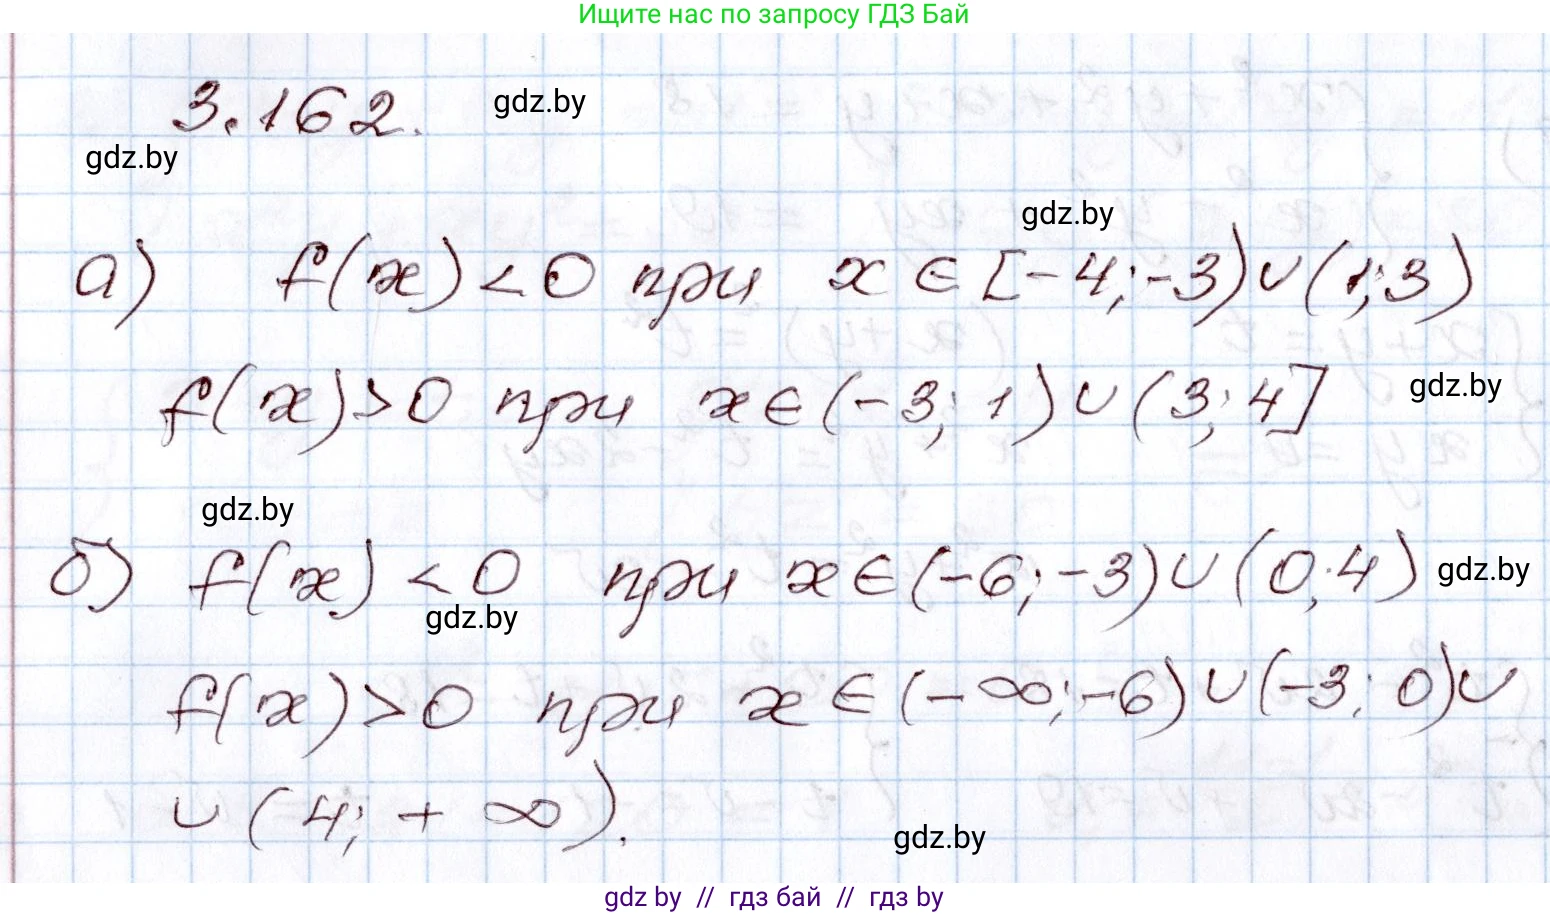 Ищите нас по запросу ГДЗ Бай
3.162. gdz.by
gdz.by
gdz.by
а) f(x) < 0 при x ∈ [-4; -3) ∪ (1; 3)
f(x) > 0 при x ∈ (-3; 1) ∪ (3; 4] gdz.by
gdz.by
б) f(x) < 0 при x ∈ (-6; -3) ∪ (0; 4) gdz.by
gdz.by
f(x) > 0 при x ∈ (-∞; -6) ∪ (-3; 0) ∪
∪ (4; + ∞).
gdz.by
gdz by // гдз бай // гдз by